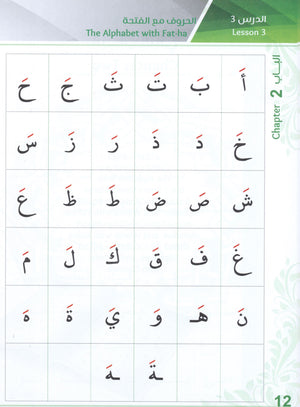 الدرس 3
Lesson 3
الحروف مع الفتحة
The Alphabet with Fat-ha
الباب 2
Chapter
أَ بَ تَ ثَ جَ حَ
خَ دَ ذَ رَ زَ سَ
شَ صَ ضَ طَ ظَ عَ
غَ فَ قَ كَ لَ مَ
نَ هَـ وَ يَ ةَ هَ
ـةَ ـهَ
12